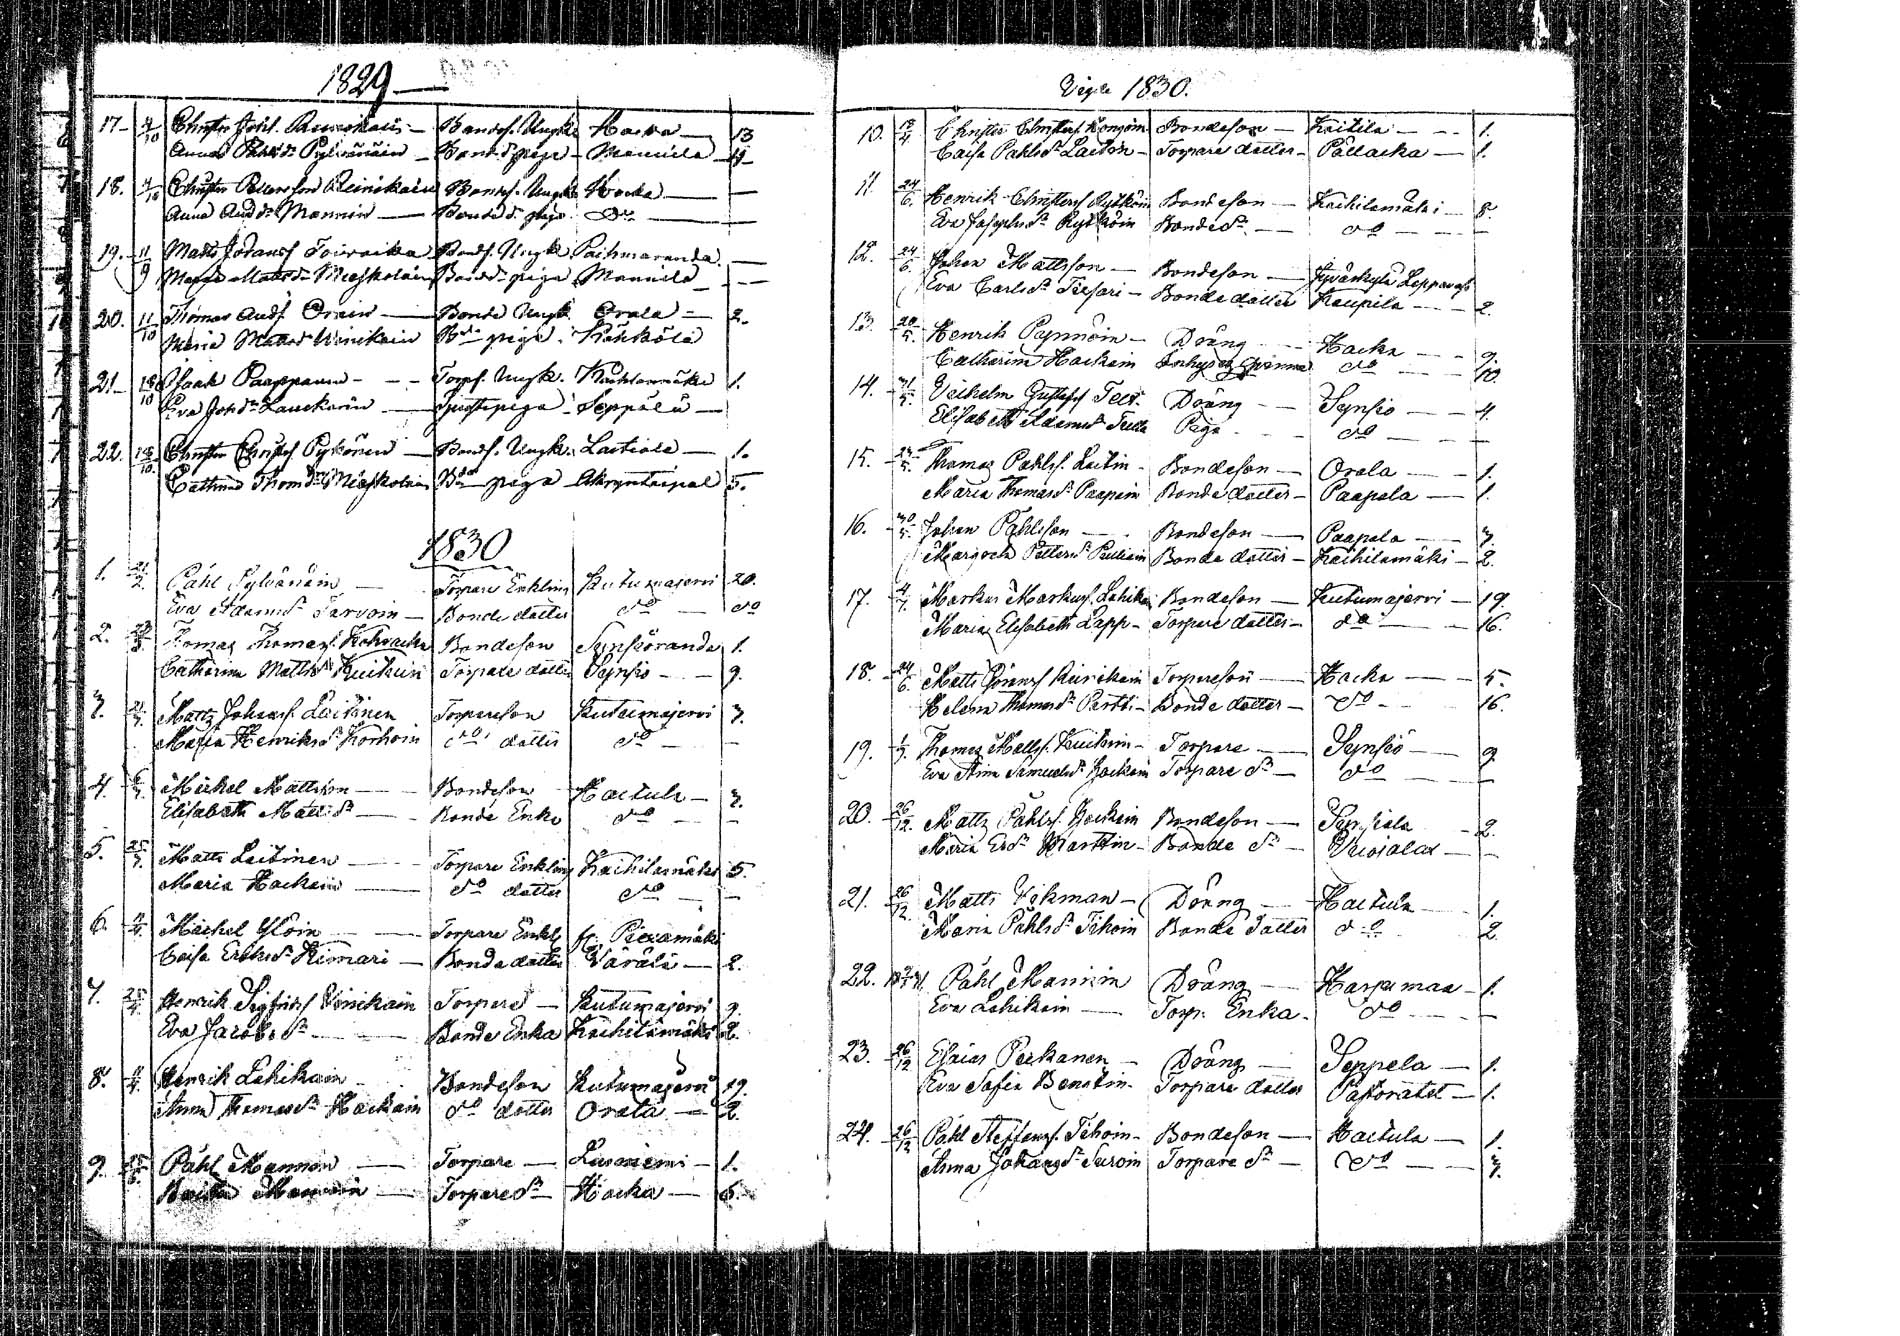 1829
17 4/10 Christer Johs. Bands. Ungk. Hacka 13
Anna Påhlsdr Pylvänäin Bondd. piga Mannila 11
18. 4/10 Christer Petersson Reinikain Bands. Ungk Hacka
Anna And.dr Mannin Bonde d. piga do
19. 11/9 Matts Johanss Toivacka Bonds. Ungk Paihmaranda
Matsdr Mieskolain Bondd. piga Mannila
20. 11/10 Thomas Ands. Orain Bonde Ungk Orala 2.
Maria Mattsdr Winikain Bdr piga Kähkölä
21 18/10 Isaak Paappanen Torps. Ungk. Kaihlamäki 1.
Eva Johdr Lauckarin piga Seppälä
22. 18/10 Christer Christers Pykönen Bonds. Ungk. Laitiala 1.
Cathrina Thomdr Mieskolain Bdr piga 5.
1830
1. 21/2 Påhl Pylvänäin Torpare Enkling Kutumajervi 20.
Eva Adamsdr Tarvoin Bonde dotter do do
2. Tomas Thomass. Kokvacka Bondeson Synsiöranda 1.
Catharina Mattsdr Kuikuin Torpare dotter Synsiö 9.
3. 21/3 Matts Johans. Laitinen Torpareson Kutumajervi 3.
Maria Henriksdr Korhoin do dotter do
4. 6/3 Mickel Mattsson Bondeson Haetula 3.
Elisabeth Mattsdr Bonde Enka do
5. 25/3 Matts Laitinen Torpare Enkling Kaihilamäki 5.
Maria Hackain do dotter do
6. 4/4 Michel Ylöin Torpare Enkl. fr. Piexämäki
Caisa Ericsdr Kimari Bonde dotter Väräli 2.
7. 25/4 Henrik Sigfrids Winikain Torpare Kutumajervi 9.
Eva Jacobsdr Bonde Enka Kaihilamäki 2.
8. 4/4 Henrik Lehikain Bondeson Kutumajervi 19.
Anna Thomasdr Hackain do dotter Orala 2.
9. 25/5 Påhl Mannin Torpare Lusniemi 1.
Mannin Torparedr Hacka 6.
Vigde 1830.
10. 18/4 Christer Christers Kongoin Bondeson Kaitila 1.
Caisa Påhlsdr Laitoin Torpare dotter Pällacka 1.
11. 24/6. Henrik Christers Rytköin Bondeson Kaihilamäki 8.
Eva Josephsdr Rytköin Bondedr do
12. 24/6. Johan Mattsson Bondeson Jyväskylä Leppäves
Eva Carlsdr Tiesari Bonde dotter Kaupila 2.
13. 20/5. Henrik Pynnöin Dräng Hacka 9.
Catharina Hackain Inhyses Qvinna do 10.
14. 31/5. Vilhelm Gustafs Teit. Dräng Synsiö 4.
Elisabeth Adamsdr Tulla Piga do
15. 24/5. Thomas Påhls. Laitin Bondeson Orala 1.
Maria Thomasdr Paapain Bonde dotter Paapala 1.
16. 30/5. Johan Påhlsson Bondeson Paapala 3.
Margreta Pettersdr Pulliain Bonde dotter Kaihilamäki 2.
17. 4/7. Markus Markuss. Lehika Bondeson Kutumajervi 19.
Maria Elisabeth Lapp Torpare dotter do 16.
18. 24/6. Matts Görans Reinikain Torpareson Hacka 5.
Helena Thomasdr Pertti Bonde dotter do 16.
19. 1/7. Thomas Matts. Kuikuin Torpare Synsiö 9.
Eva Stina Samuelsdr Hackain Torpare dr do
20. 26/12. Matts Påhls. Hackain Bondeson 2.
Maria Ersdr Marttin Bonde dr
21. 26/12. Matts Vikman Dräng Haetula 1.
Maria Påhlsdr Tihoin Bonde Dotter do 2.
22. Påhl Mannin Dräng Harjumaa 1.
Eva Lehikain Torp. Enka. do
23. 26/12 Elias Peckanen Dräng Seppela 1.
Eva Sofia Benstin Torpare dotter Pastoratet 1.
24. 26/12 Påhl Steffens. Tihoin Bondeson Haetula 1.
Anna Johansdr Suroin Torpare dr do 3.